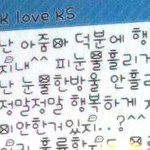 k love KS
난 아줌마 덕분에 행
지내^^ 피눈물흘리거
난 눈물한방울 안흘
정말정말 행복하게 지
미안한거있지..?^^